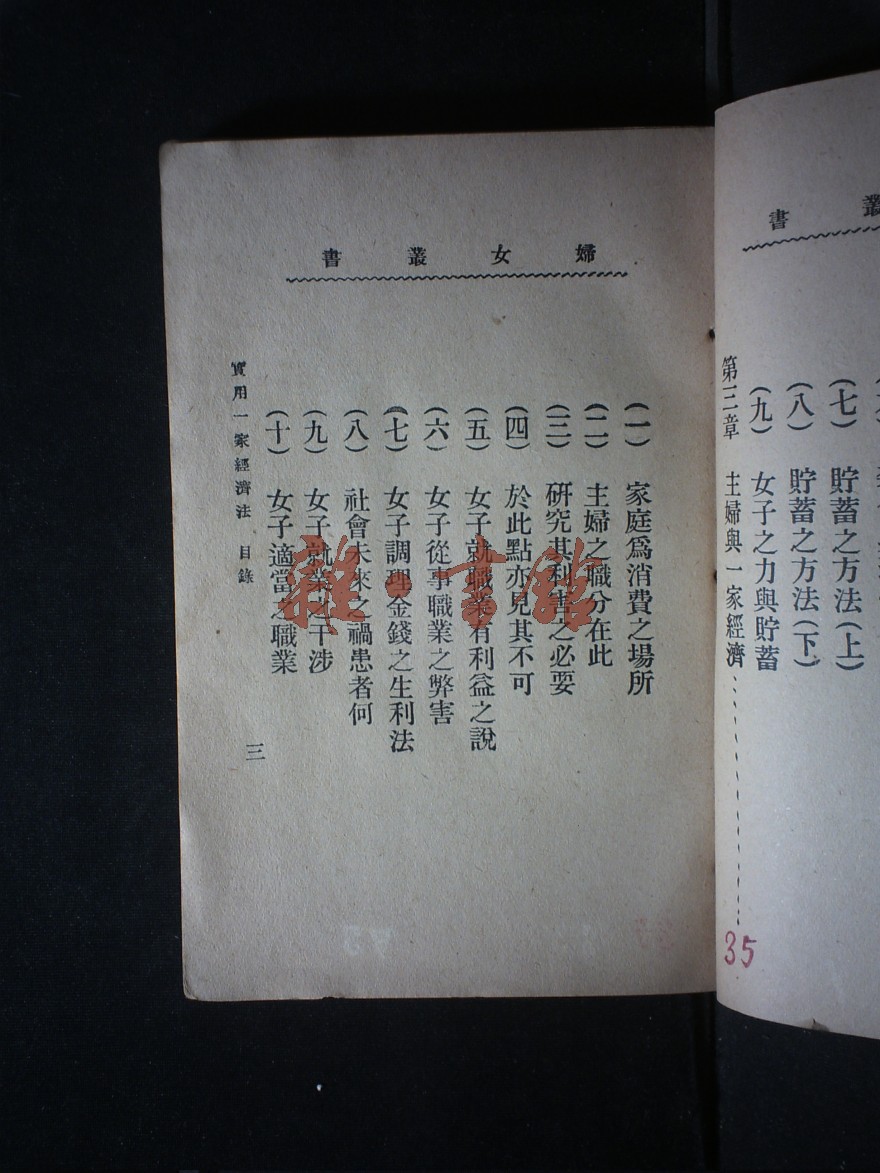 叢書
(七) 貯蓄之方法(上)
(八) 貯蓄之方法(下)
(九) 女子之力與貯蓄
第三章 主婦與一家經濟
35
婦女叢書
(一) 家庭爲消費之場所
(二) 主婦之職分在此
(三) 研究其利害之必要
(四) 於此點亦見其不可
(五) 女子就職業有利益之說
(六) 女子從事職業之弊害
(七) 女子調理金錢之生利法
(八) 社會未來之禍患者何
(九) 女子就業之干涉
(十) 女子適當之職業
實用一家經濟法 目錄
三
雜·書館